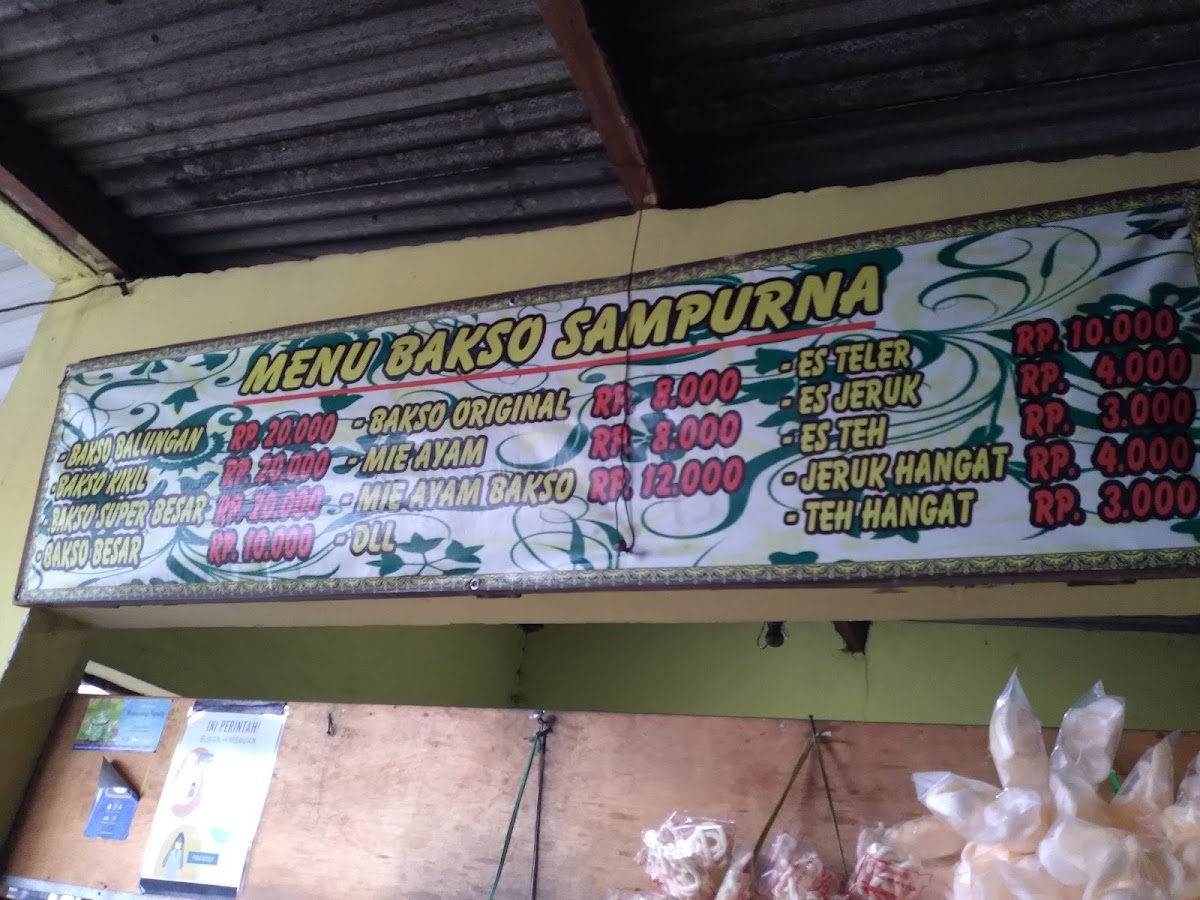 MENU BAKSO SAMPURNA
- BAKSO BALUNGAN RP. 20.000
- BAKSO KIKIL RP. 20.000
- BAKSO SUPER BESAR RP. 20.000
- BAKSO BESAR RP. 10.000
- BAKSO ORIGINAL RP. 8.000
- MIE AYAM RP. 8.000
- MIE AYAM BAKSO RP. 12.000
- DLL
- ES TELER RP. 10.000
- ES JERUK RP. 4.000
- ES TEH RP. 3.000
- JERUK HANGAT RP. 4.000
- TEH HANGAT RP. 3.000
INI PERINTAH!
BUKAN HIMBAUAN